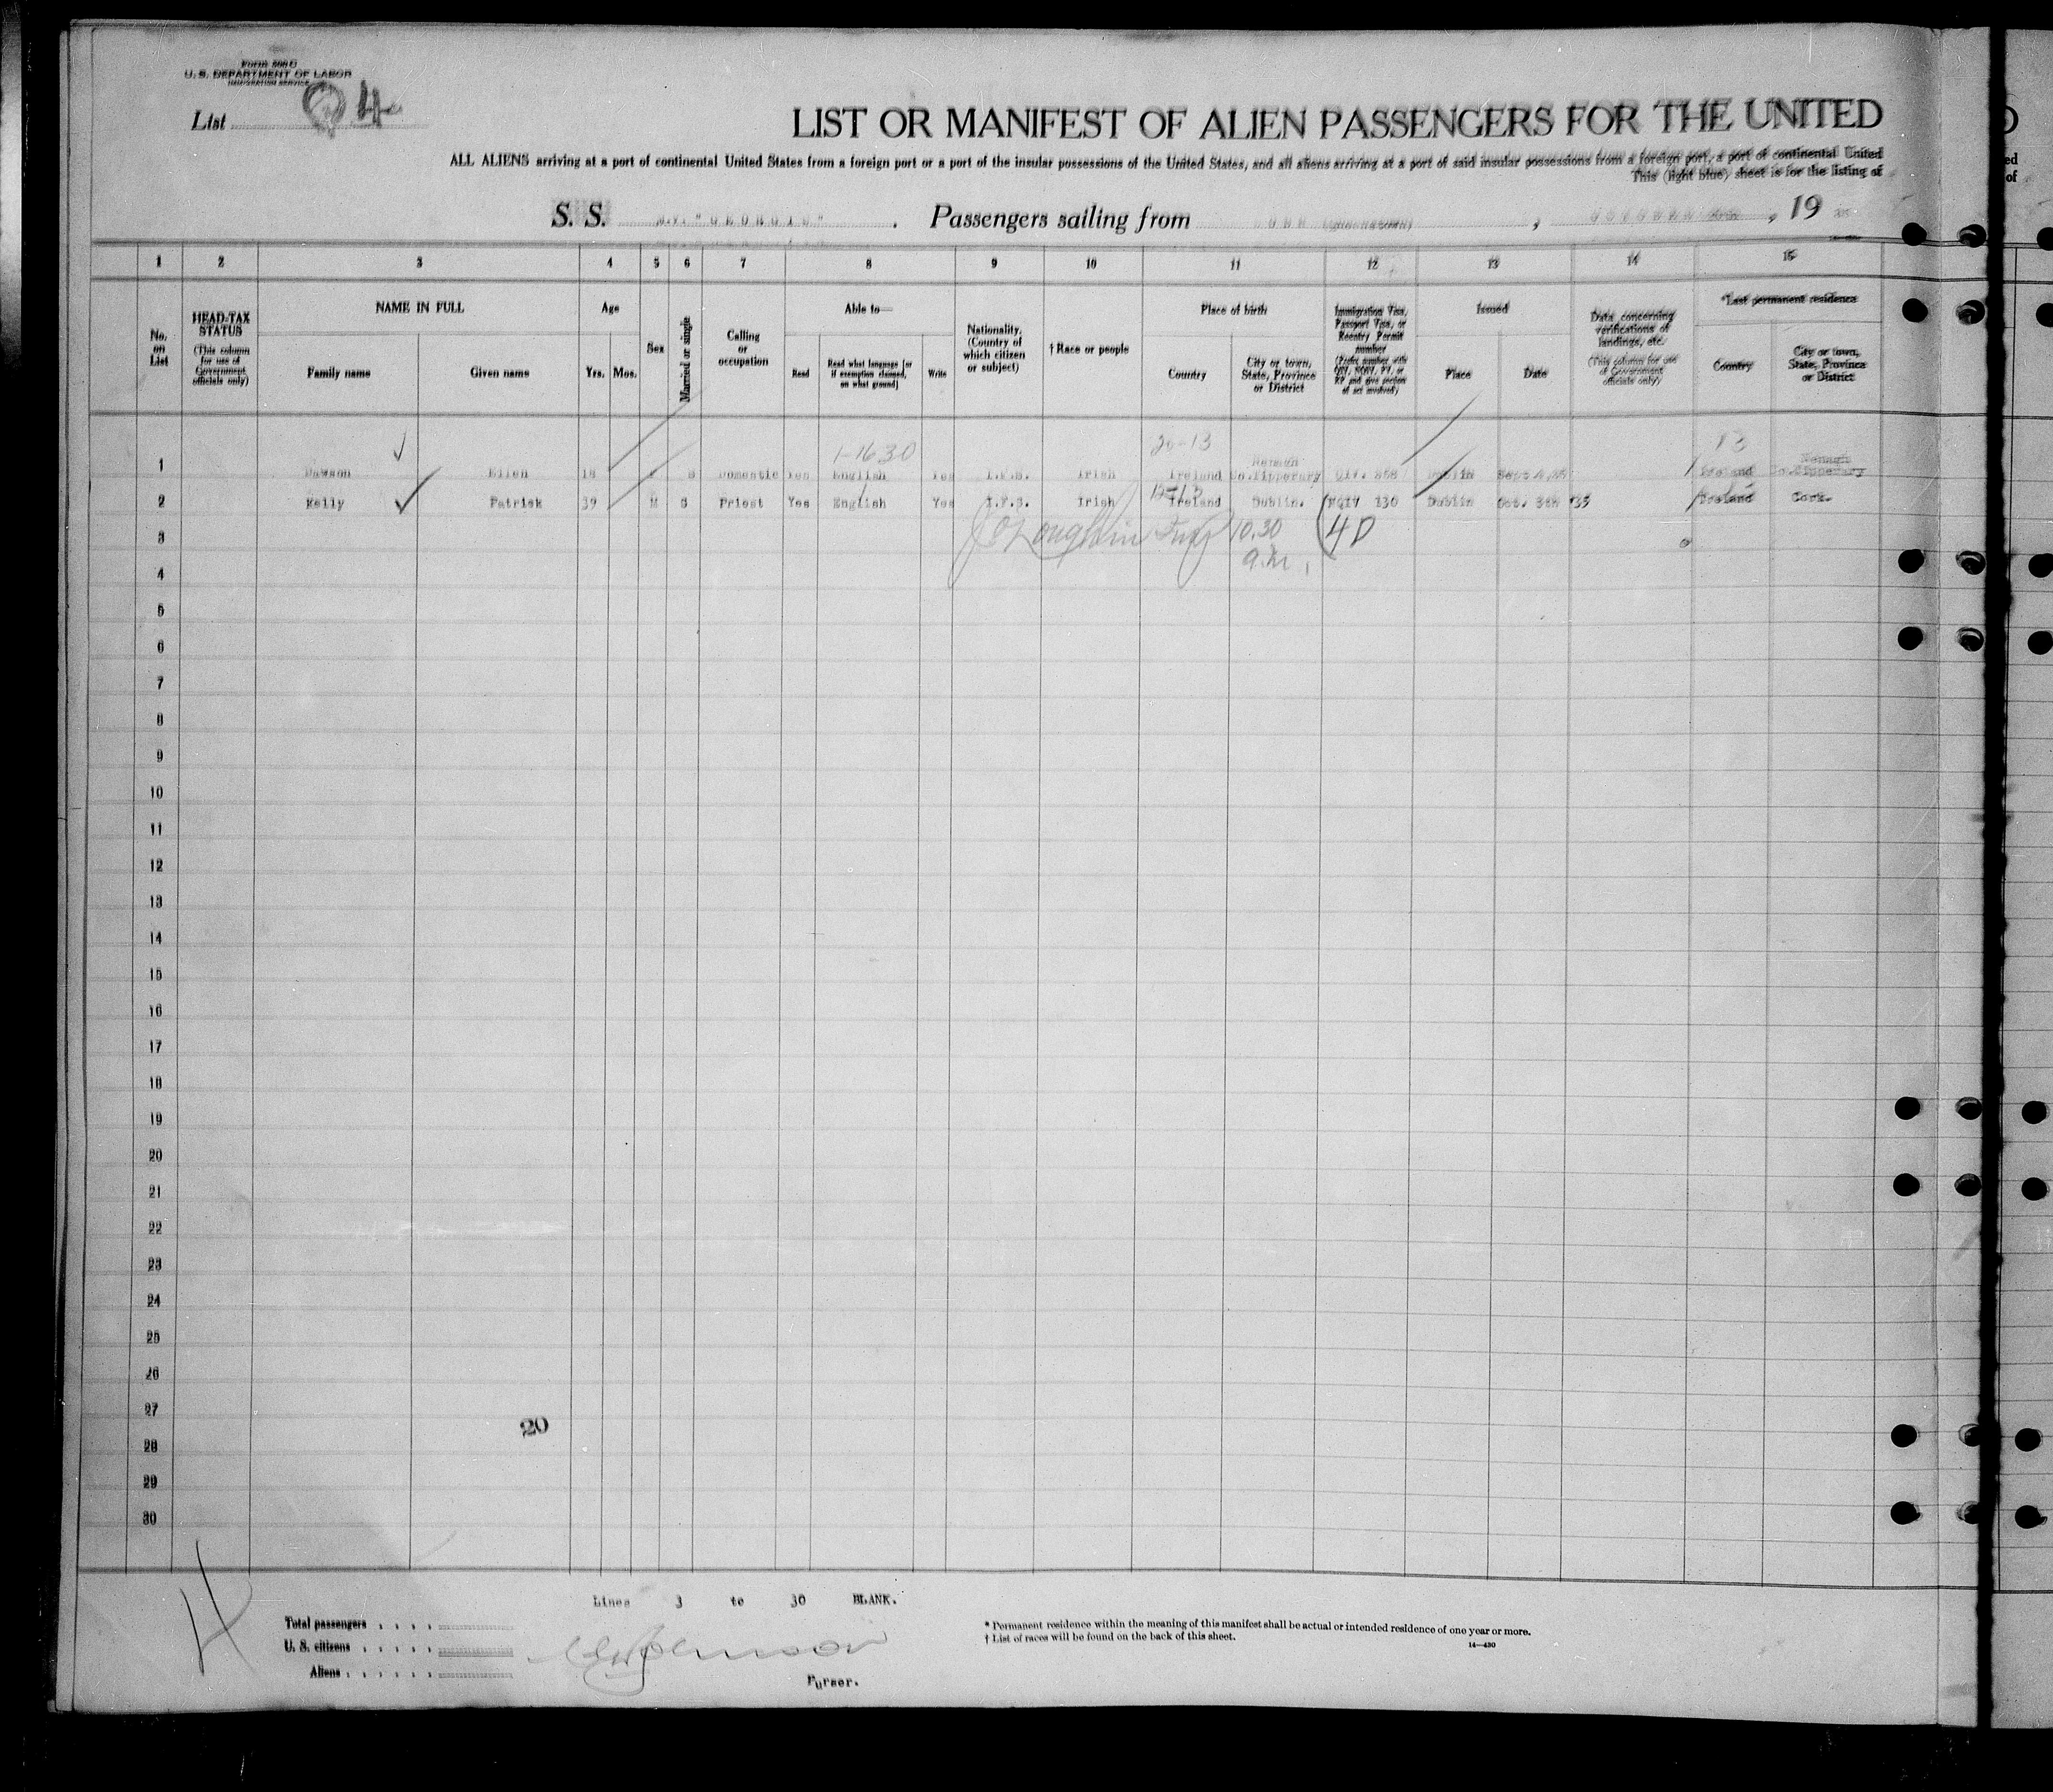 Form 500 C
U. S. DEPARTMENT OF LABOR
IMMIGRATION SERVICE
List 4
LIST OR MANIFEST OF ALIEN PASSENGERS FOR THE UNITED
ALL ALIENS arriving at a port of continental United States from a foreign port or a port of the insular possessions of the United States, and all aliens arriving at a port of said insular possessions from a foreign port, a port of continental United
This (light blue) sheet is for the listing of
S. S. M.V. "GEORGIC". Passengers sailing from COBH (QUEENSTOWN), OCTOBER, 19
1 2 3 4 5 6 7 8 9 10 11 12 13 14 15
No. on List
HEAD-TAX STATUS
(This column for use of Government officials only)
NAME IN FULL
Family name
Given name
Age
Yrs. Mos.
Sex
Married or single
Calling or occupation
Able to—
Read
Read what language [or if exemption claimed, on what ground]
Write
Nationality. (Country of which citizen or subject)
† Race or people
Place of birth
Country
City or town, State, Province or District
Immigration Visa, Passport Visa, or Reentry Permit number
(Prefix number with QIV, NQIV, PV, or RP and give section of act involved)
Issued
Place
Date
Data concerning verifications of landings, etc.
(This column for use of Government officials only)
*Last permanent residence
Country
City or town, State, Province or District
1-1630
20-13
13
1 Dawson Ellen 18 S Domestic Yes English Yes I.F.S. Irish Ireland Nenagh Co.Tipperary QIV. 868 Dublin Ireland Nenagh Co.Tipperary
2 Kelly Patrick 39 M S Priest Yes English Yes I.F.S. Irish Ireland Dublin. NQIV 130 Dublin Oct. 3th '35 Ireland Cork.
3 10.30 4D
4 a.m.
5
6
7
8
9
10
11
12
13
14
15
16
17
18
19
20
21
22
23
24
25
26
27
20
28
29
30
Lines 3 to 30 BLANK.
Total passengers
U. S. citizens
Aliens
Purser.
* Permanent residence within the meaning of this manifest shall be actual or intended residence of one year or more.
† List of races will be found on the back of this sheet.
14—430